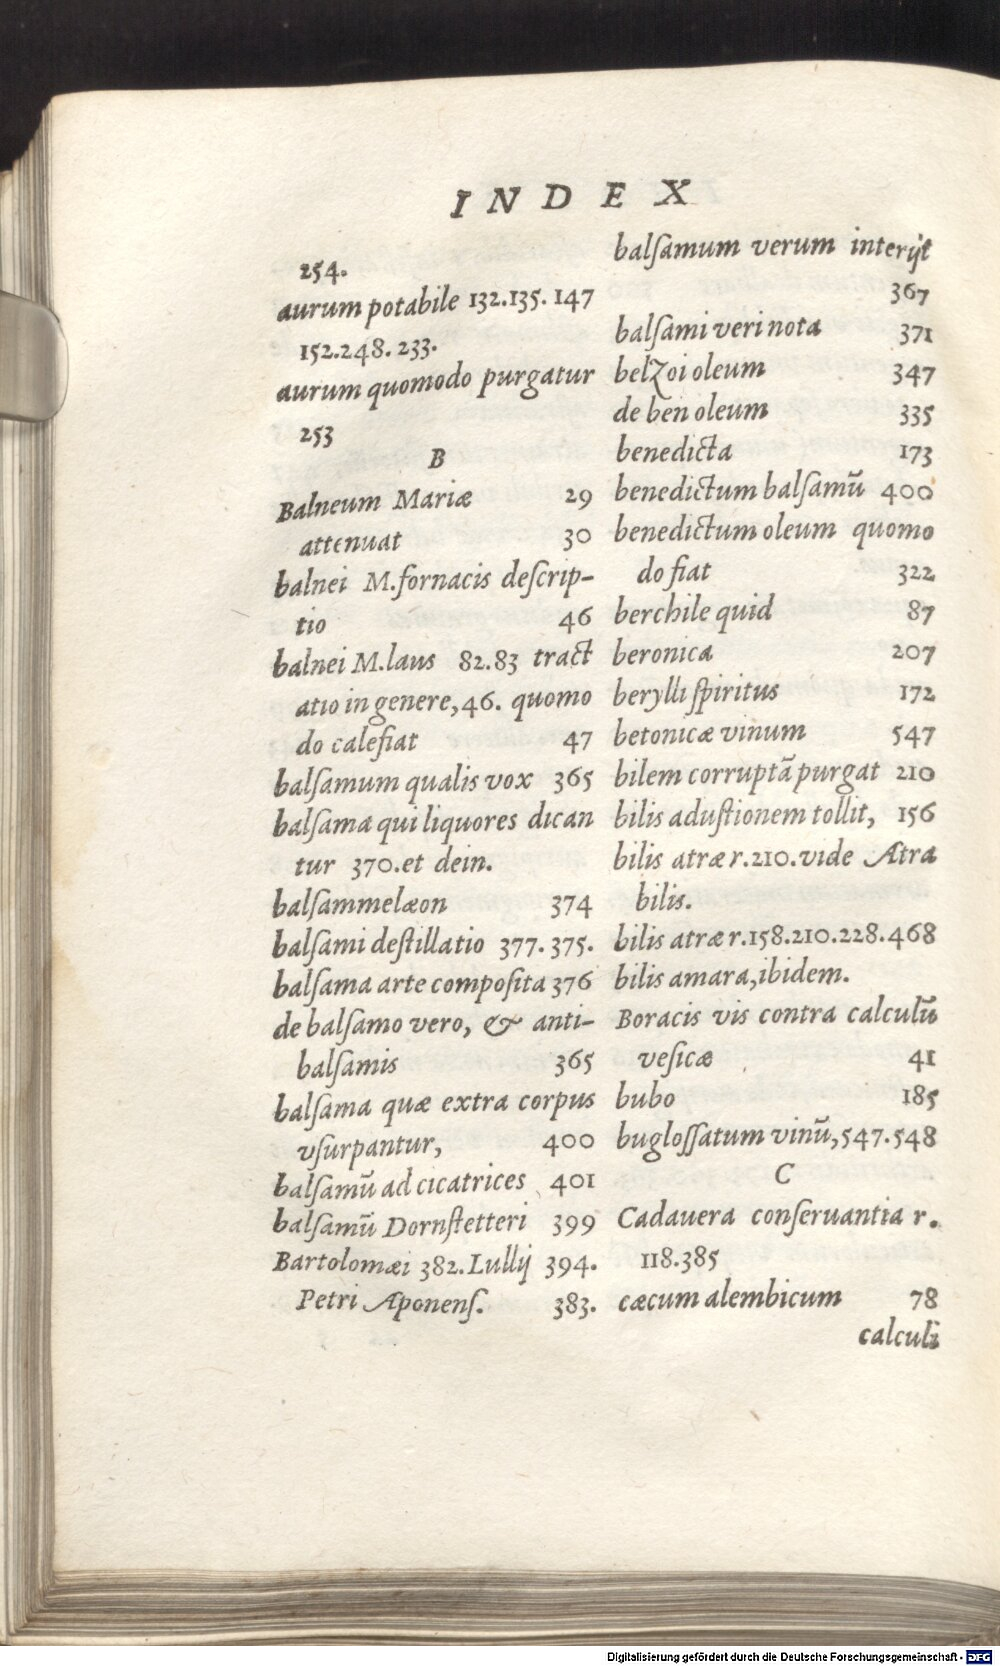 INDEX
254.
aurum potabile 132.135.147
152.248.233.
aurum quomodo purgatur
253
B
Balneum Mariæ 29
attenuat 30
balnei M.fornacis deſcrip-
tio 46
balnei M.laus 82.83 tract
atio in genere,46. quomo
do calefiat 47
balſamum qualis vox 365
balſama qui liquores dican
tur 370.et dein.
balſammelæon 374
balſami deſtillatio 377.375.
balſama arte compoſita 376
de balſamo vero, & anti-
balſamis 365
balſama quæ extra corpus
vſurpantur, 400
balſamū ad cicatrices 401
balſamū Dornſtetteri 399
Bartolomæi 382.Lullij 394.
Petri Aponenſ. 383.
balſamum verum interijt
367
balſami veri nota 371
belZoi oleum 347
de ben oleum 335
benedicta 173
benedictum balſamū 400
benedictum oleum quomo
do fiat 322
berchile quid 87
beronica 207
berylli ſpiritus 172
betonicæ vinum 547
bilem corruptā purgat 210
bilis aduſtionem tollit, 156
bilis atræ r.210.vide Atra
bilis.
bilis atræ r.158.210.228.468
bilis amara,ibidem.
Boracis vis contra calculū
veſicæ 41
bubo 185
bugloſſatum vinū,547.548
C
Cadauera conſeruantia r.
118.385
cæcum alembicum 78
calculi
Digitalisierung gefördert durch die Deutsche Forschungsgemeinschaft - DFG